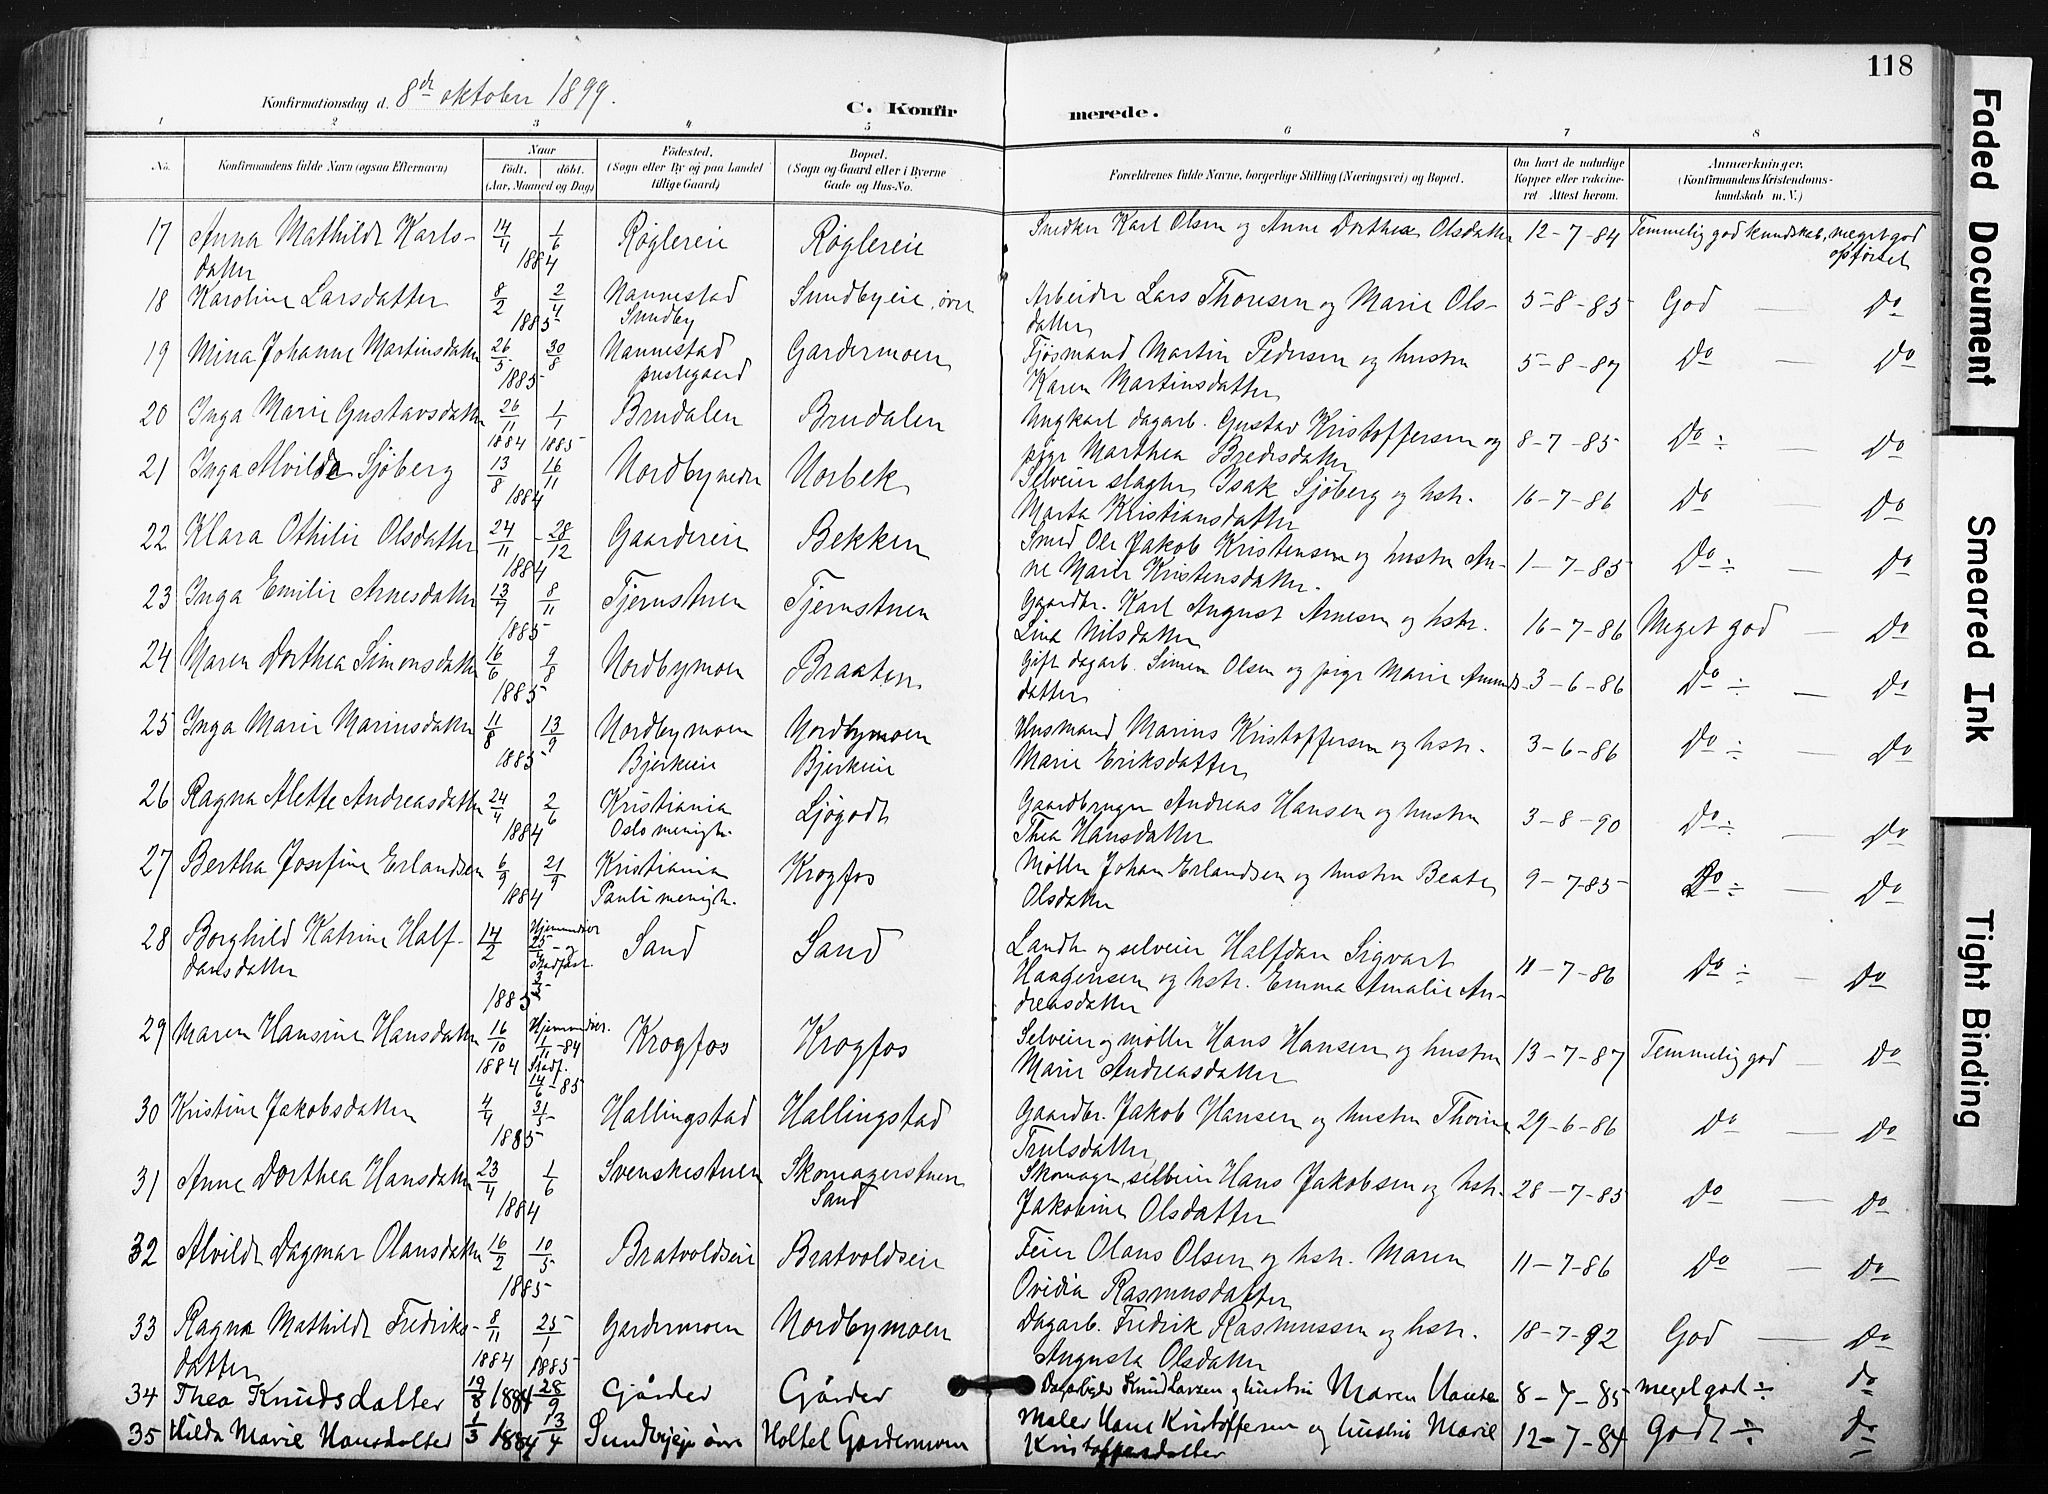 118
Konfirmationsdag d. 8de oktober 1899.
C. Konfirmerede.
1 2 3 4 5 6 7 8
No. Konfirmandens fulde Navn (ogsaa Efternavn) Naar født. døbt. (Aar, Maaned og Dag) Fødested. (Sogn eller By og paa Landet tillige Gaard) Bopæl. (Sogn og Gaard eller i Byerne Gade og Hus-No. Forældrenes fulde Navne, borgerlige Stilling (Næringsvei) og Bopæl. Om havt de naturlige Kopper eller vaccineret Attest herom. Anmærkninger. (Konfirmandens Kristendomskundskab m. V.)
17 Anna Mathilde Karls- 14/4 1/6 Røglereie Røglereie Snedker Karl Olsen og Anne Dorthea Olsdatter 12-7-84 Temmelig god kundskab, meget god
datter 1884 opførsel
18 Karoline Larsdatter 8/2 2/4 Nannestad Sundbyeie, øvre Arbeider Lars Thoresen og Marie Ols- 5-8-85 God — Do
1885 Sundby datter
19 Mina Johanne Martinsdatter 26/5 30/8 Nannestad Gardermoen Fjøsmand Martin Pedersen og hustru 5-8-87 Do — Do
1885 prestegaard Karen Martinsdatter
20 Inga Marie Gustavsdatter 26/11 1/1 Brudalen Brudalen Ungkarl dagarb. Gustav Kristoffersen og 8-7-85 Do ÷ — Do
1884 1885 pige Marthea Bredesdatter
21 Inga Alvilde Sjøberg 13/8 16/11 Nordby nedre Norbek Selveier slagter Isak Sjøberg og hstr. 16-7-86 Do — Do
1884 Marta Kristiansdatter
22 Klara Othilie Olsdatter 24/11 - 28/12 Gaardereie Bekken Smed Ole Jakob Kristensen og hustru An- 1-7-85 Do ÷ — Do
1884 ne Marie Kristensdatter.
23 Inga Emilie Arnesdatter 13/7 8/11 Tjernstuen Tjernstuen Gaardbr. Karl August Arnesen og hstr. 16-7-86 Meget god — Do
1885 Lina Nilsdatter
24 Maren Dorthea Simonsdatter 16/6 9/8 Nordbymoen Braaten Gift dagarb. Simen Olsen og pige Marie Amunds- 3-6-86 Do ÷ — Do
1885 datter
25 Inga Marie Mariusdatter 11/8 13/9 Nordbymoen Nordbymoen Husmand Marius Kristoffersen og hstr. 3-6-86 Do ÷ — Do
1885 Bjerkeie Bjerkeie Marie Eriksdatter
26 Ragna Alette Andreasdatter 24/4 2/6 Kristiania Ljøgodt Gaardbruger Andreas Hansen og hustru 3-8-90 Do ÷ — Do
1884 Oslo menigh. Thea Hansdatter
27 Bertha Josefine Erlandsen 6/9 21/9 Kristiania Krogfos Møller Johan Erlandsen og hustru Beate 9-7-85 Do ÷ — Do
1884 Pauli menigh. Olsdatter
28 Borghild Katrine Half- 14/2 Hjemmedøbt 25/4 og Sand Sand Landh. og selveier Halfdan Sigvart 11-7-86 Do ÷ — Do
dansdatter 1885 Stadfæst. 3/5 Haagensen og hstr. Emma Amalie An-
dreasdatter
29 Maren Hansine Hansdatter 16/10 Hjemmedøbt. 1/11-84 Krogfos Krogfos Selveier og møller Hans Hansen og hustru 13-7-87 Temmelig god — Do
1884 Stadf. 14/6-85 Marie Andreasdatter
30 Kristine Jakobsdatter 4/4 31/5 Hallingstad Hallingstad Gaardbr. Jakob Hansen og hustru Thorine 29-6-86 Do — Do
1885 Trulsdatter
31 Anne Dorthea Hansdatter 23/4 1/6 Svenskestuen Skomagerstuen Skomager, selveier Hans Jakobsen og hstr. 28-7-85 Do — Do
1884 Sand Jakobine Olsdatter
32 Alvilde Dagmar Olausdatter 16/2 10/5 Bratvoldseie Bratvoldseie Feier Olaus Olsen og hstr. Maren 11-7-86 Do — Do
1885 Ovidia Rasmusdatter
33 Ragna Mathilde Fredriks- 8/11 25/1 Gardermoen Nordbymoen Dagarb. Fredrik Rasmussen og hstr. 18-7-92 God — Do
datter 1884 1885 Augusta Olsdatter
34 Thea Knudsdatter 19/8 1884 28/9 Gjårder Gårder Dagarbejder Knud Larsen og hustru Maren 8-7-85 meget god ÷ Do
35 Hilda Marie Hansdatter 1/3 1884 13/4 Sundbyeje øvre Holtet Gardermoen Maler Hans Kristoffersen og hustru Marie 12-7-84 Godt ÷ Do
Kristoffersdatter
Faded Document
Smeared Ink
Tight Binding